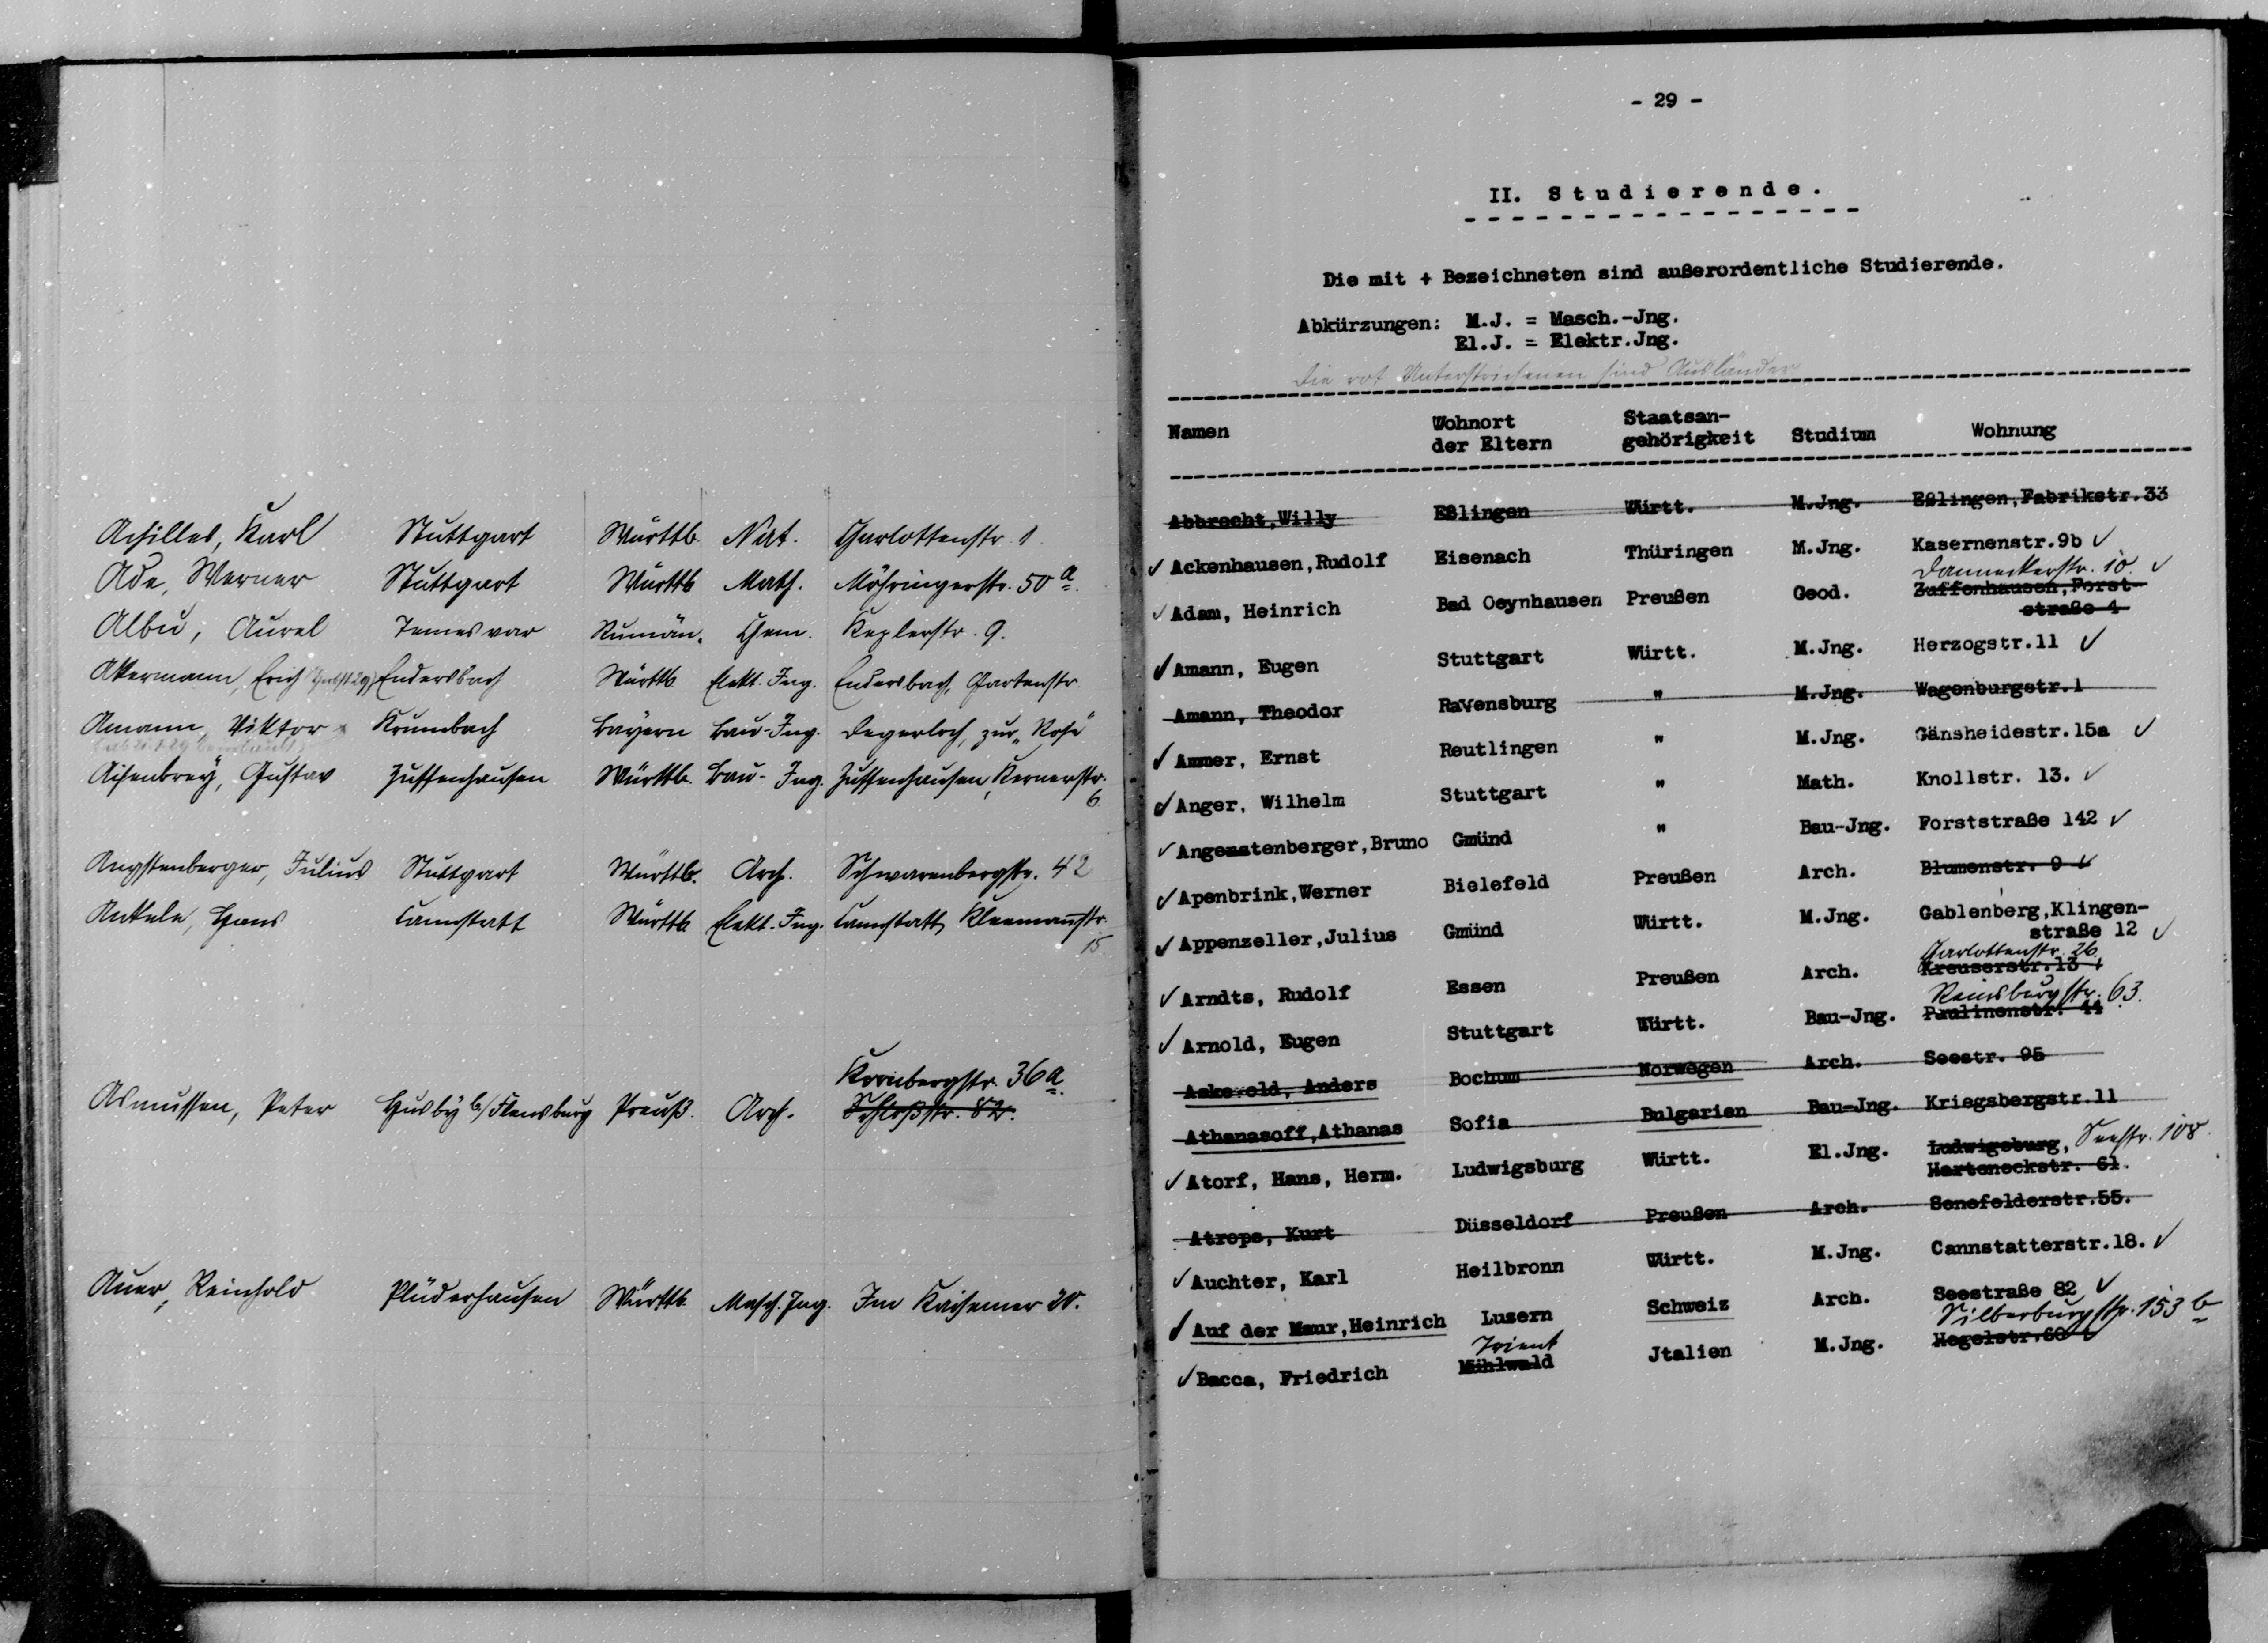 Achilles, Karl Stuttgart Württb. Nat. Charlottenstr. 1.
Ade, Werner Stuttgart Württb. Math. Möhringerstr. 50 a.
Albu, Aurel Temesvar Rumän. Chem. Keplerstr. 9.
Akermann, Erich Endersbach Württb. Elekt. Ing. Endersbach, Gartenstr.
Amann, Viktor Krumbach Bayern Bau-Ing. Degerloch, zur „Rose"
Aisenbrey, Gustav Zuffenhausen Württb. Bau-Ing. Zuffenhausen, Kernerstr.
6.
Angstenberger, Julius Stuttgart Württb. Arch. Schwarenbergstr. 42
Ankele, Hans Cannstatt Württb. Elekt.-Ing. Cannstatt, Kleemannstr.
15
Kornbergstr. 36 a.
Asmussen, Peter Husby b/Flensburg Preuß. Arch. Schloßstr. 82.
Auer, Reinhold Plüderhausen Württb. Masch. Ing. Im Kaisemer 20.
- 29 -
II. Studierende.
Die mit + Bezeichneten sind außerordentliche Studierende.
Abkürzungen: M.J. = Masch.-Jng.
El.J. = Elektr.Jng.
Die rot Unterstrichenen sind Ausländer
Namen Wohnort der Eltern Staatsan-gehörigkeit Studium Wohnung
Abbrecht,Willy Eßlingen Württ. M.Jng. Eßlingen,Fabrikstr.33
✓ Ackenhausen,Rudolf Eisenach Thüringen M.Jng. Kasernenstr.9b ✓
Danneckerstr. 10. ✓
✓ Adam, Heinrich Bad Oeynhausen Preußen Geod. Zuffenhausen,Forst-
straße 4
✓ Amann, Eugen Stuttgart Württ. M.Jng. Herzogstr.11 ✓
Amann, Theodor Ravensburg " M.Jng. Wagenburgstr.1
✓ Ammer, Ernst Reutlingen " M.Jng. Gänsheidestr.15a ✓
✓ Anger, Wilhelm Stuttgart " Math. Knollstr. 13. ✓
✓ Angenstenberger,Bruno Gmünd " Bau-Jng. Forststraße 142 ✓
✓ Apenbrink,Werner Bielefeld Preußen Arch. Blumenstr. 9 ✓
✓ Appenzeller,Julius Gmünd Württ. M.Jng. Gablenberg,Klingen-
straße 12 ✓
Charlottenstr. 26
✓ Arndts, Rudolf Essen Preußen Arch. Kreuserstr.13
Reinsburgstr. 63.
✓ Arnold, Eugen Stuttgart Württ. Bau-Jng. Paulinenstr. 44
Askevold, Anders Bochum Norwegen Arch. Seestr. 95
Athanasoff,Athanas Sofia Bulgarien Bau-Jng. Kriegsbergstr.11
✓ Atorf, Hans, Herm. Ludwigsburg Württ. El.Jng. Ludwigsburg, Seestr. 108.
Harteneckstr. 61.
Atrops, Kurt Düsseldorf Preußen Arch. Senefelderstr.55.
✓ Auchter, Karl Heilbronn Württ. M.Jng. Cannstatterstr.18. ✓
✓ Auf der Maur,Heinrich Luzern Schweiz Arch. Seestraße 82 ✓
Trient Silberburgstr. 153 b
✓ Bacca, Friedrich Mühlwald Jtalien M.Jng. Hegelstr.60